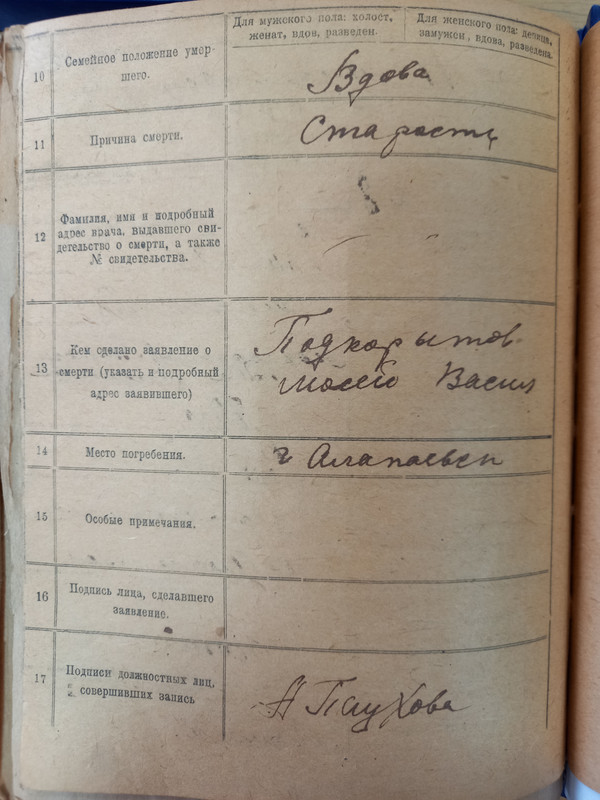 Для мужского пола: холост, женат, вдов, разведен.
Для женского пола: девица, замужем, вдова, разведена.
10
Семейное положение умер-
шего.
Вдова
11
Причина смерти.
Старость
12
Фамилия, имя и подробный
адрес врача, выдавшего сви-
детельство о смерти, а также
№ свидетельства.
13
Кем сделано заявление о
смерти (указать и подробный
адрес заявившего)
Подкорытов
Васил
14
Место погребения.
г Алапаевск
15
Особые примечания.
16
Подпись лица, сделавшего
заявление.
17
Подписи должностных лиц,
совершивших запись